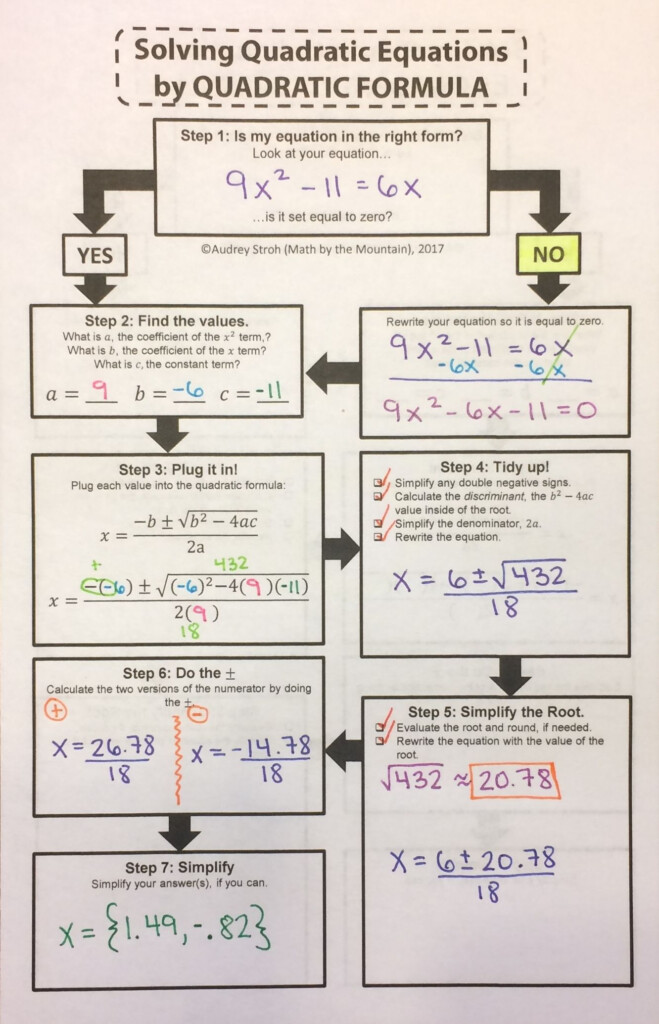 Solving Quadratic Equations
by QUADRATIC FORMULA
Step 1: Is my equation in the right form?
Look at your equation...
9x² - 11 = 6x
...is it set equal to zero?
YES
©Audrey Stroh (Math by the Mountain), 2017
NO
Rewrite your equation so it is equal to zero.
9x² - 11 = 6x
-6x -6x
9x² - 6x - 11 = 0
Step 2: Find the values.
What is a, the coefficient of the x² term,?
What is b, the coefficient of the x term?
What is c, the constant term?
a = 9 b = -6 c = -11
Step 3: Plug it in!
Plug each value into the quadratic formula:
x = (-b ± √(b² − 4ac)) / 2a
+ 432
x = (-(-6) ± √((-6)² - 4(9)(-11))) / 2(9)
18
Step 4: Tidy up!
Simplify any double negative signs.
Calculate the discriminant, the b² − 4ac
value inside of the root.
Simplify the denominator, 2a.
Rewrite the equation.
x = (6 ± √432) / 18
Step 5: Simplify the Root.
Evaluate the root and round, if needed.
Rewrite the equation with the value of the
root.
√432 ≈ 20.78
x = (6 ± 20.78) / 18
Step 6: Do the ±
Calculate the two versions of the numerator by doing
the ±.
+ -
x = 26.78 / 18 x = -14.78 / 18
Step 7: Simplify
Simplify your answer(s), if you can.
x = {1.49, -.82}